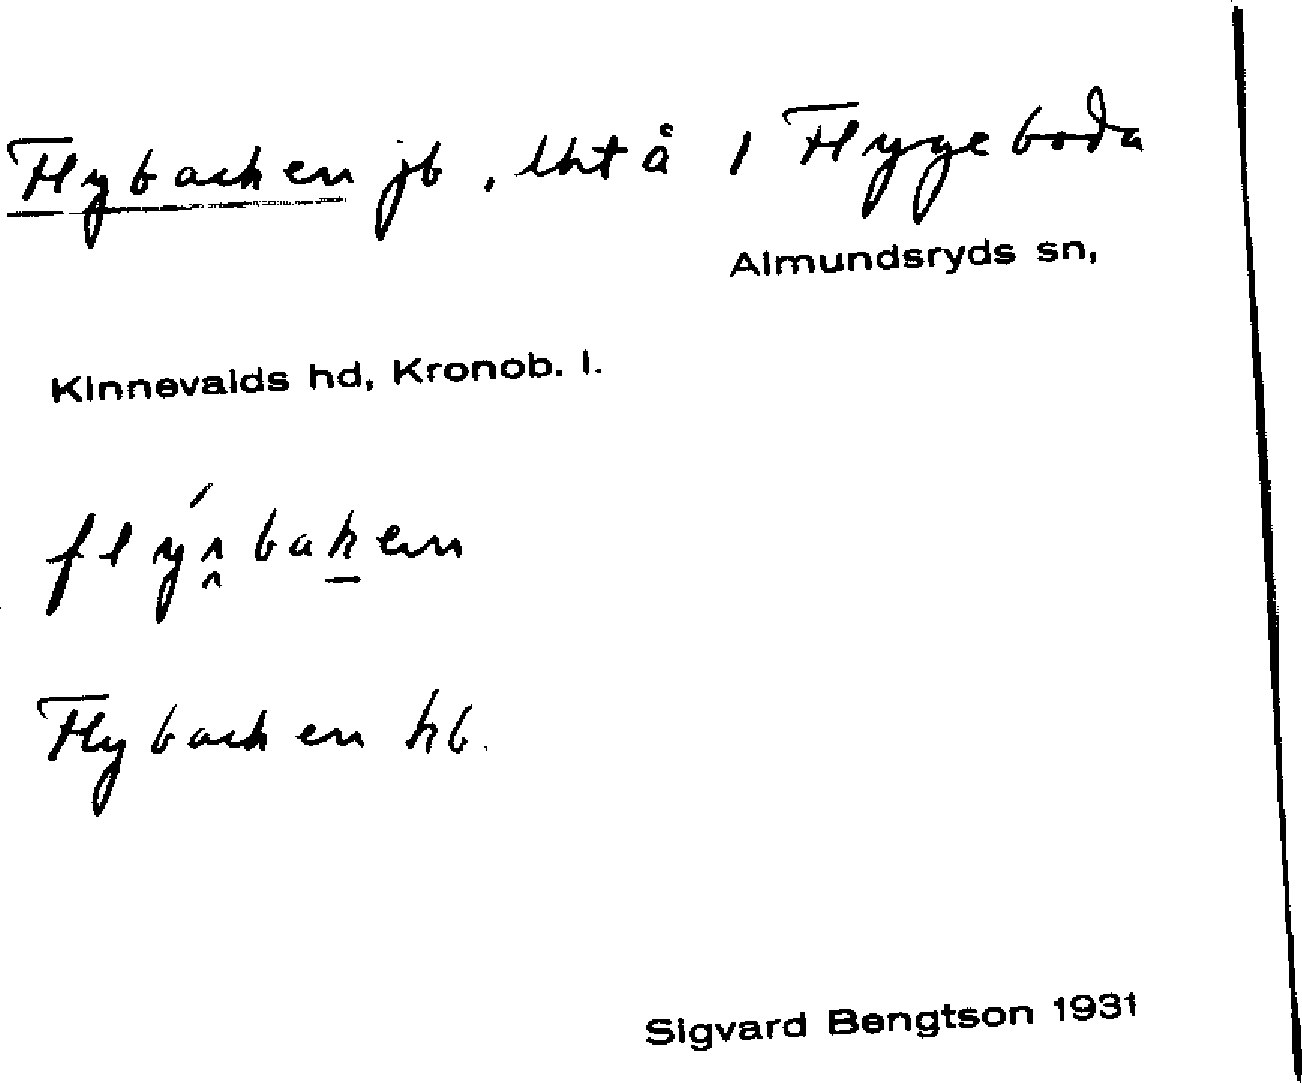 Flybacken jb, lht å 1 Flygeboda
Almundsryds sn,
Kinnevalds hd, Kronob. l.
Flybacken hb.
Sigvard Bengtson 1931